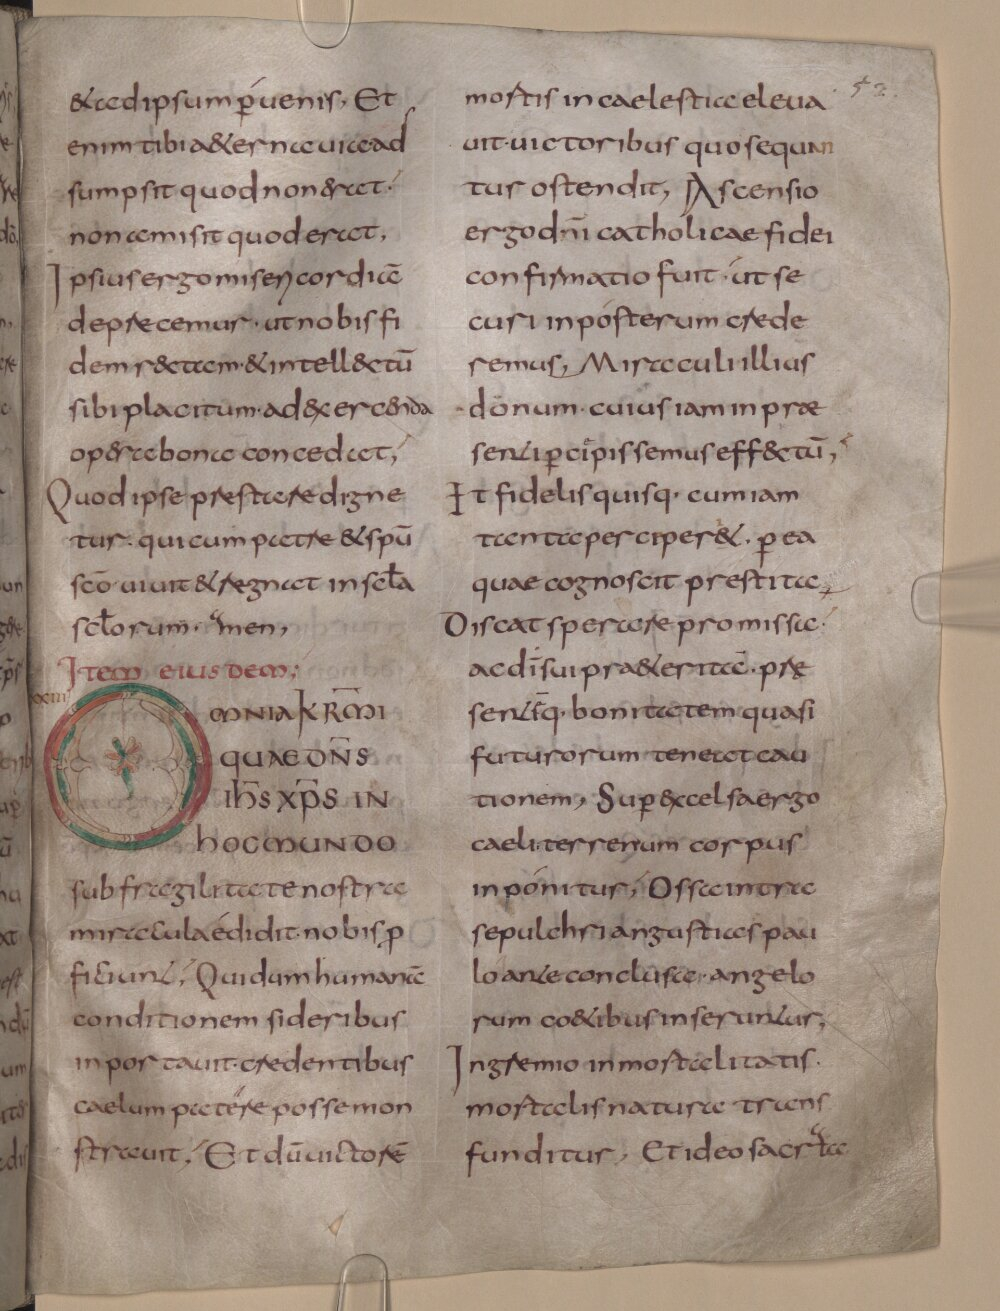 52.
&adipsum p̄uenis, Et
enim tibi a&ernauicead
sumpsit quod non erat.
non amisit quod erat,
Ipsius ergo misericordiā
deprecemur. ut nobis fi
dem r&tam. & intell&ctū
sibi placitum. ad exercenda
opera bona concedat,
Quod ipse prestare digne
tur. qui cum patre & spū
scō uiuit & regnat in scl̄a
scl̄orum. amen,
Item eius dem;
xxiii
OMNIA KR̄MI
QUAE DN̄S
IHS̄ XP̄S IN
HOC MUNDO
sub fragilitate nostra
miracula edidit. nobis p̄
ficiunt, Qui dum humanā
conditionem sideribus
inportauit. credentibus
caelum patere posse mon
strauit, Et dū uictorē
mortis in caelestia eleua
uit. uictoribus quo sequan
tur ostendit, Ascensio
ergo dn̄i catholicae fidei
confirmatio fuit. ut se
curi in posterum crede
remus, Miraculi illius
donum. cuius iam in præ
senti p̄cipissemus eff&ctū,
Et fidelis quisq. cum iam
tanta perciper&. p̄ ea
quae cognoscit prestita,
Discat sperare promissa.
ac dī sui pra&eritā. pre
sentēq. bonitatem quasi
futurorum teneat cau
tionem, Sup̄ excelsa ergo
caeli. terrenum corpus
inponitur, Ossa intra
sepulchri angustias pau
lo ante conclusa. angelo
rum co&ibus inseruntur,
Ingremio inmortalitatis.
mortalis natura trans
funditur, Et ideo sacrata